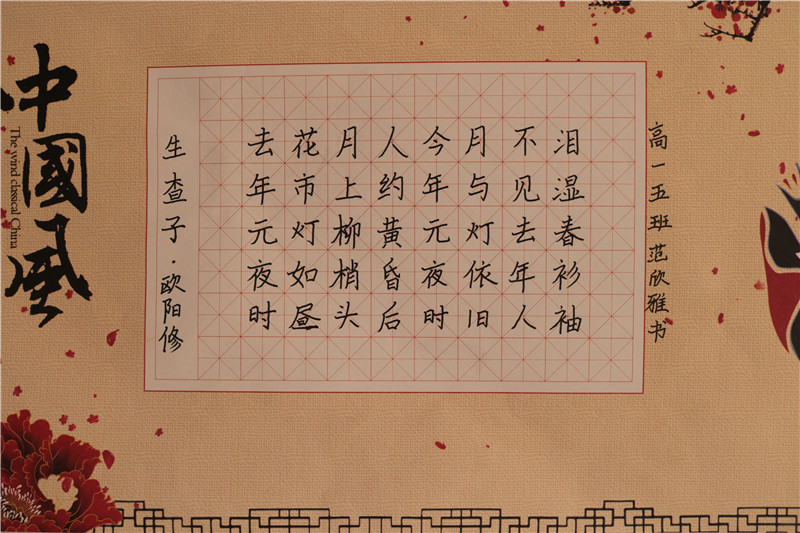 中國風
The wind classical China
生查子·欧阳修
去年元夜时
花市灯如昼
月上柳梢头
人约黄昏后
今年元夜时
月与灯依旧
不见去年人
泪湿春衫袖
高一五班 范欣雅书